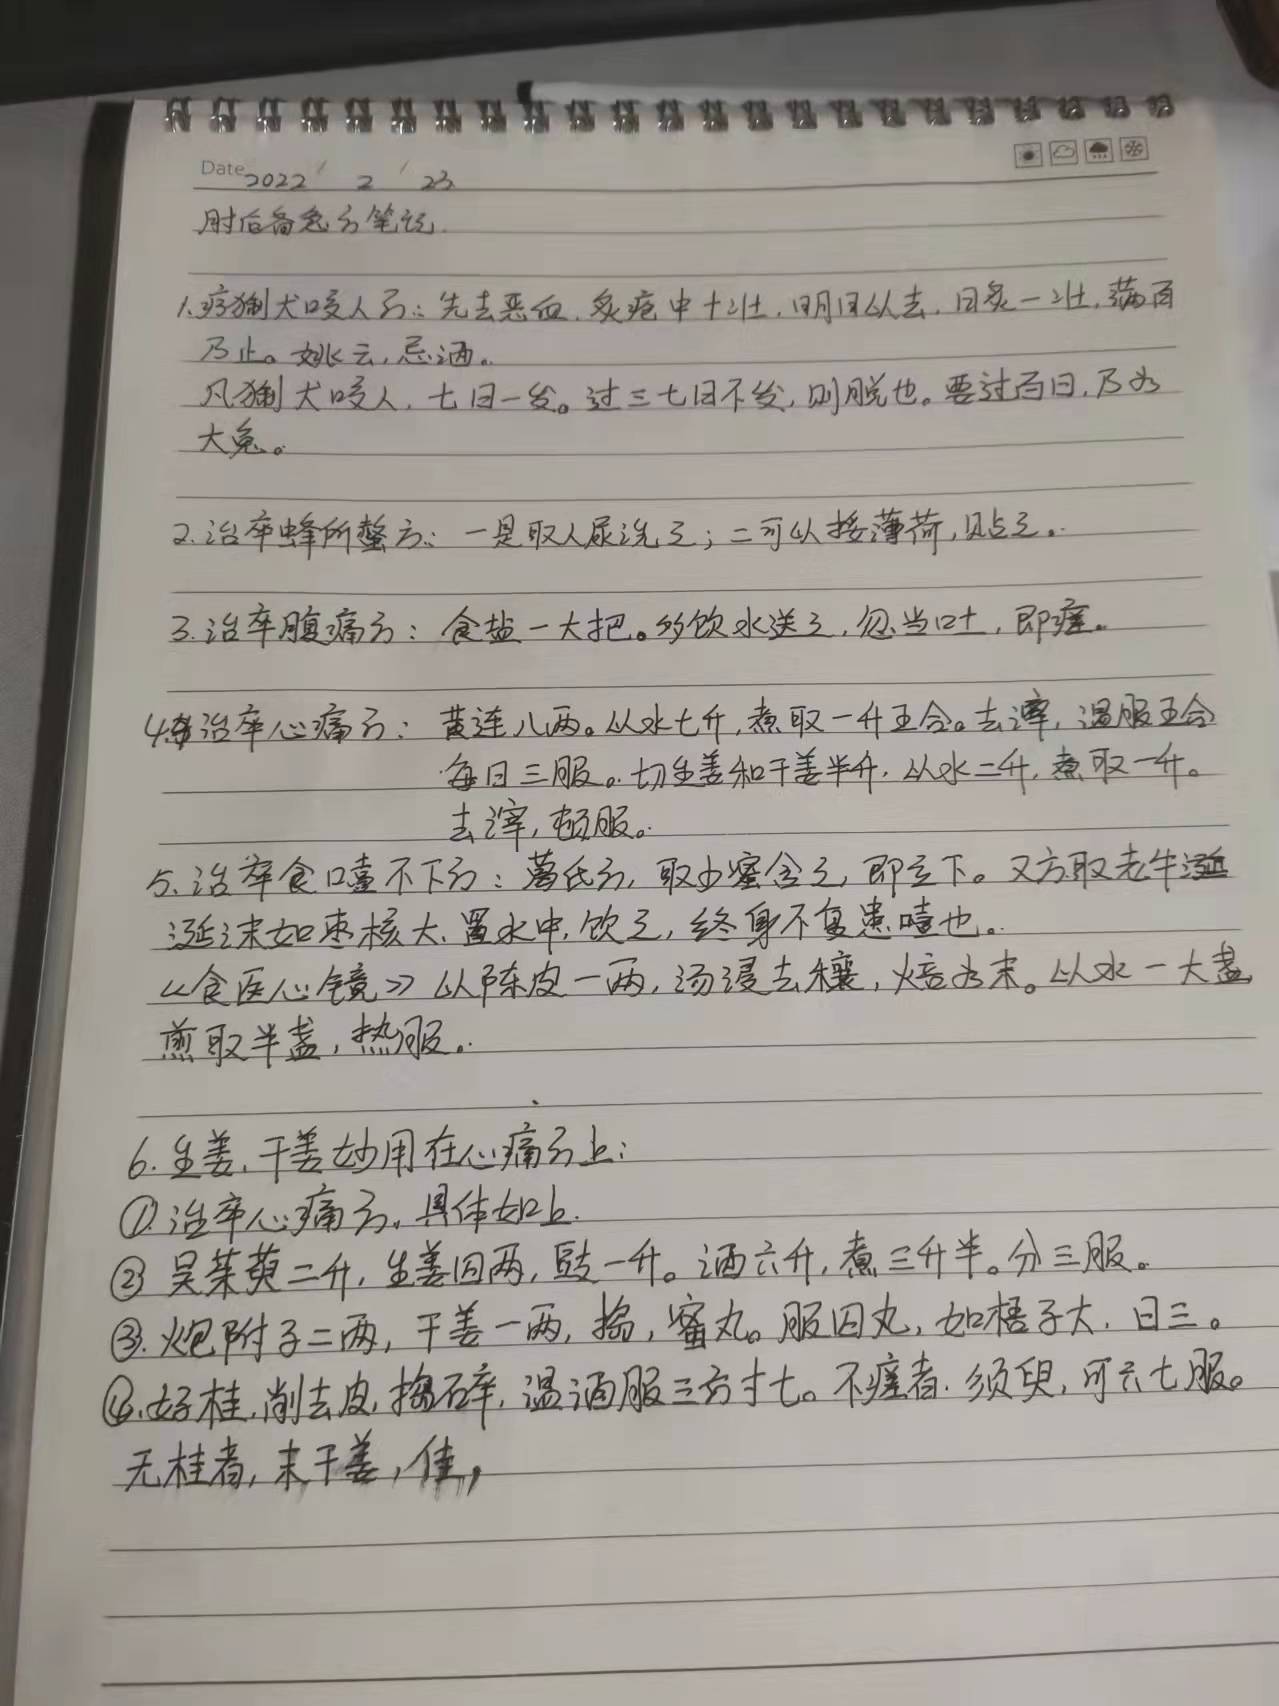 Date 2022 / 2 / 23
肘后备急方笔记.
1.疗猘犬咬人方:先去恶血,灸疮中十壮,明日以去,日灸一壮,满百
乃止。姚云,忌酒。
凡猘犬咬人,七日一发。过三七日不发,则脱也。要过百日,乃为
大免。
2.治卒蜂所螫方:一是取人尿洗之;二可以挼薄荷,贴之。
3.治卒腹痛方:食盐一大把。多饮水送之,忽当吐,即瘥。
4.治卒心痛方:黄连八两。以水七升,煮取一升五合。去滓,温服五合
每日三服。切生姜和干姜半升,以水二升,煮取一升。
去滓,顿服。
5.治卒食噎不下方:葛氏方,取少蜜含之,即立下。又方取老牛涎
涎沫如枣核大,置水中,饮之,终身不复患噎也。
《食医心镜》以陈皮一两,汤浸去穰,焙为末。以水一大盏
煎取半盏,热服。
6.生姜,干姜妙用在心痛方上:
①.治卒心痛方,具体如上.
② 吴茱萸二升,生姜四两,豉一升。酒六升,煮三升半。分三服。
③.炮附子二两,干姜一两,捣,蜜丸。服四丸,如梧子大,日三。
④.好桂,削去皮,捣碎,温酒服三方寸匕。不瘥者,须臾,可六七服。
无桂者,末干姜,佳,